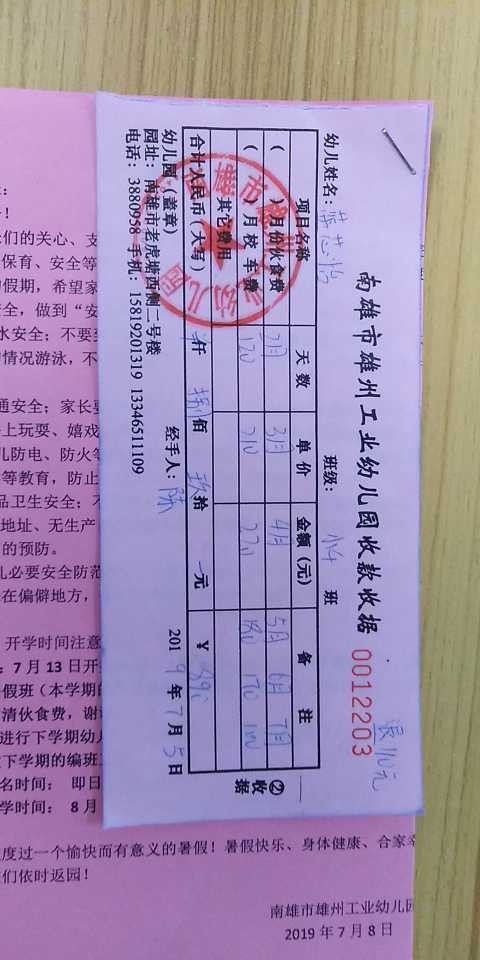 南雄市雄州工业幼儿园收款收据 0012203
退110元
幼儿姓名： 班级： 小4 班
项目名称 天数 单价 金额（元） 备注
（ ）月份伙食费 2月 3月 4月 5月 6月 7月
（ ）月校车费 120 210 220 180 170 100
其它费用
合计人民币（大写） 仟 捌佰 玖拾 元 ￥ 890
幼儿园（盖章） 经手人：陈 2019年7月5日
园址：南雄市老虎塘西侧二号楼
电话：3880958 手机：15819201319 13346511109
②
收
据
们的关心、支
保育、安全等
假期，希望家
全，做到“安
水安全；不要
情况游泳，不
通安全；家长
上玩耍、嬉戏
儿防电、防火等
等教育，防止
品卫生安全；不
地址、无生产
的预防。
儿必要安全防范
在偏僻地方，
开学时间注意
：7月13日开
假班（本学期的
清伙食费，谢
进行下学期幼儿
下学期的编班
名时间： 即日
学时间： 8月
度过一个愉快而有意义的暑假！暑假快乐、身体健康、合家幸
们依时返园！
南雄市雄州工业幼儿园
2019年7月8日